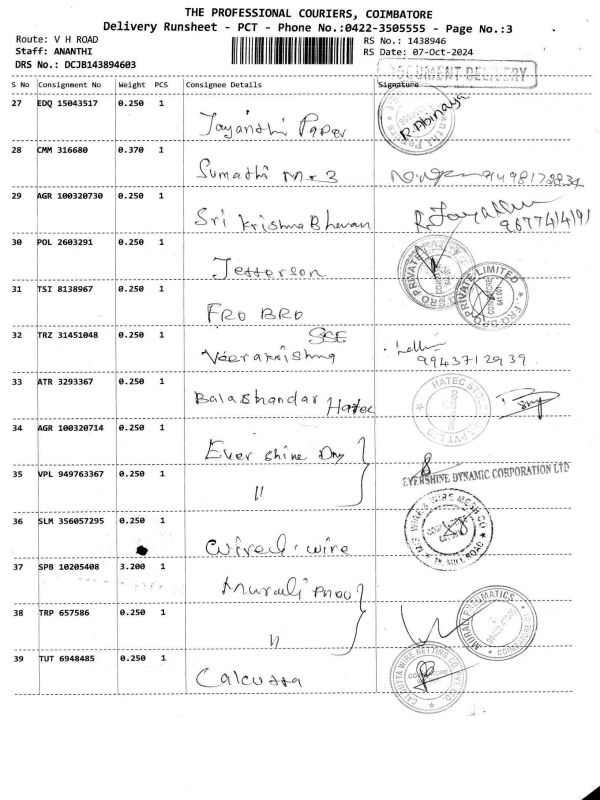 THE PROFESSIONAL COURIERS, COIMBATORE
Delivery Runsheet - PCT - Phone No.:0422-3505555 - Page No.:3
Route: V H ROAD
RS No.: 1438946
Staff: ANANTHI
RS Date: 07-Oct-2024
DRS No.: DCJB143894603
DOCUMENT DELIVERY
S No Consignment No Weight PCS Consignee Details Signature
27 EDQ 15043517 0.250 1
Jayanthi Paper R. Abinaya
28 CMM 316680 0.370 1
Sumathi M-3
29 AGR 100320730 0.250 1
Sri Krishna Bhavan
30 POL 2603291 0.250 1
Jefferson
31 TSI 8138967 0.250 1
FRO BRO FRO BRO PRIVATE LIMITED
32 TRZ 31451048 0.250 1
SSE
Veerakrishna 9943712939
33 ATR 3293367 0.250 1
Balachandar Hatec HATEC
34 AGR 100320714 0.250 1
Ever shine Dny
35 VPL 949763367 0.250 1
" EVERSHINE DYNAMIC CORPORATION LTD
36 SLM 356057295 0.250 1
Wired. wire WIRE & WIRE MESH CO
MILL ROAD
37 SPB 10205408 3.200 1
Murali Pneu
38 TRP 657586 0.250 1
" MURALI PNEUMATICS
39 TUT 6948485 0.250 1
Calcutta CALCUTTA WIRE NETTING CO PVT LTD